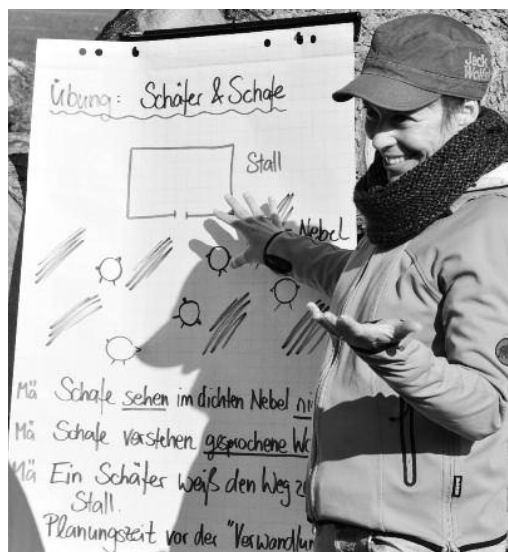 Übung: Schäfer & Schafe
Stall
Nebel
Jack
Mä Schafe sehen im dichten Nebel
Mä Schafe verstehen gesprochene
Mä Ein Schäfer weiß den Weg
Stall.
Planungszeit vor der